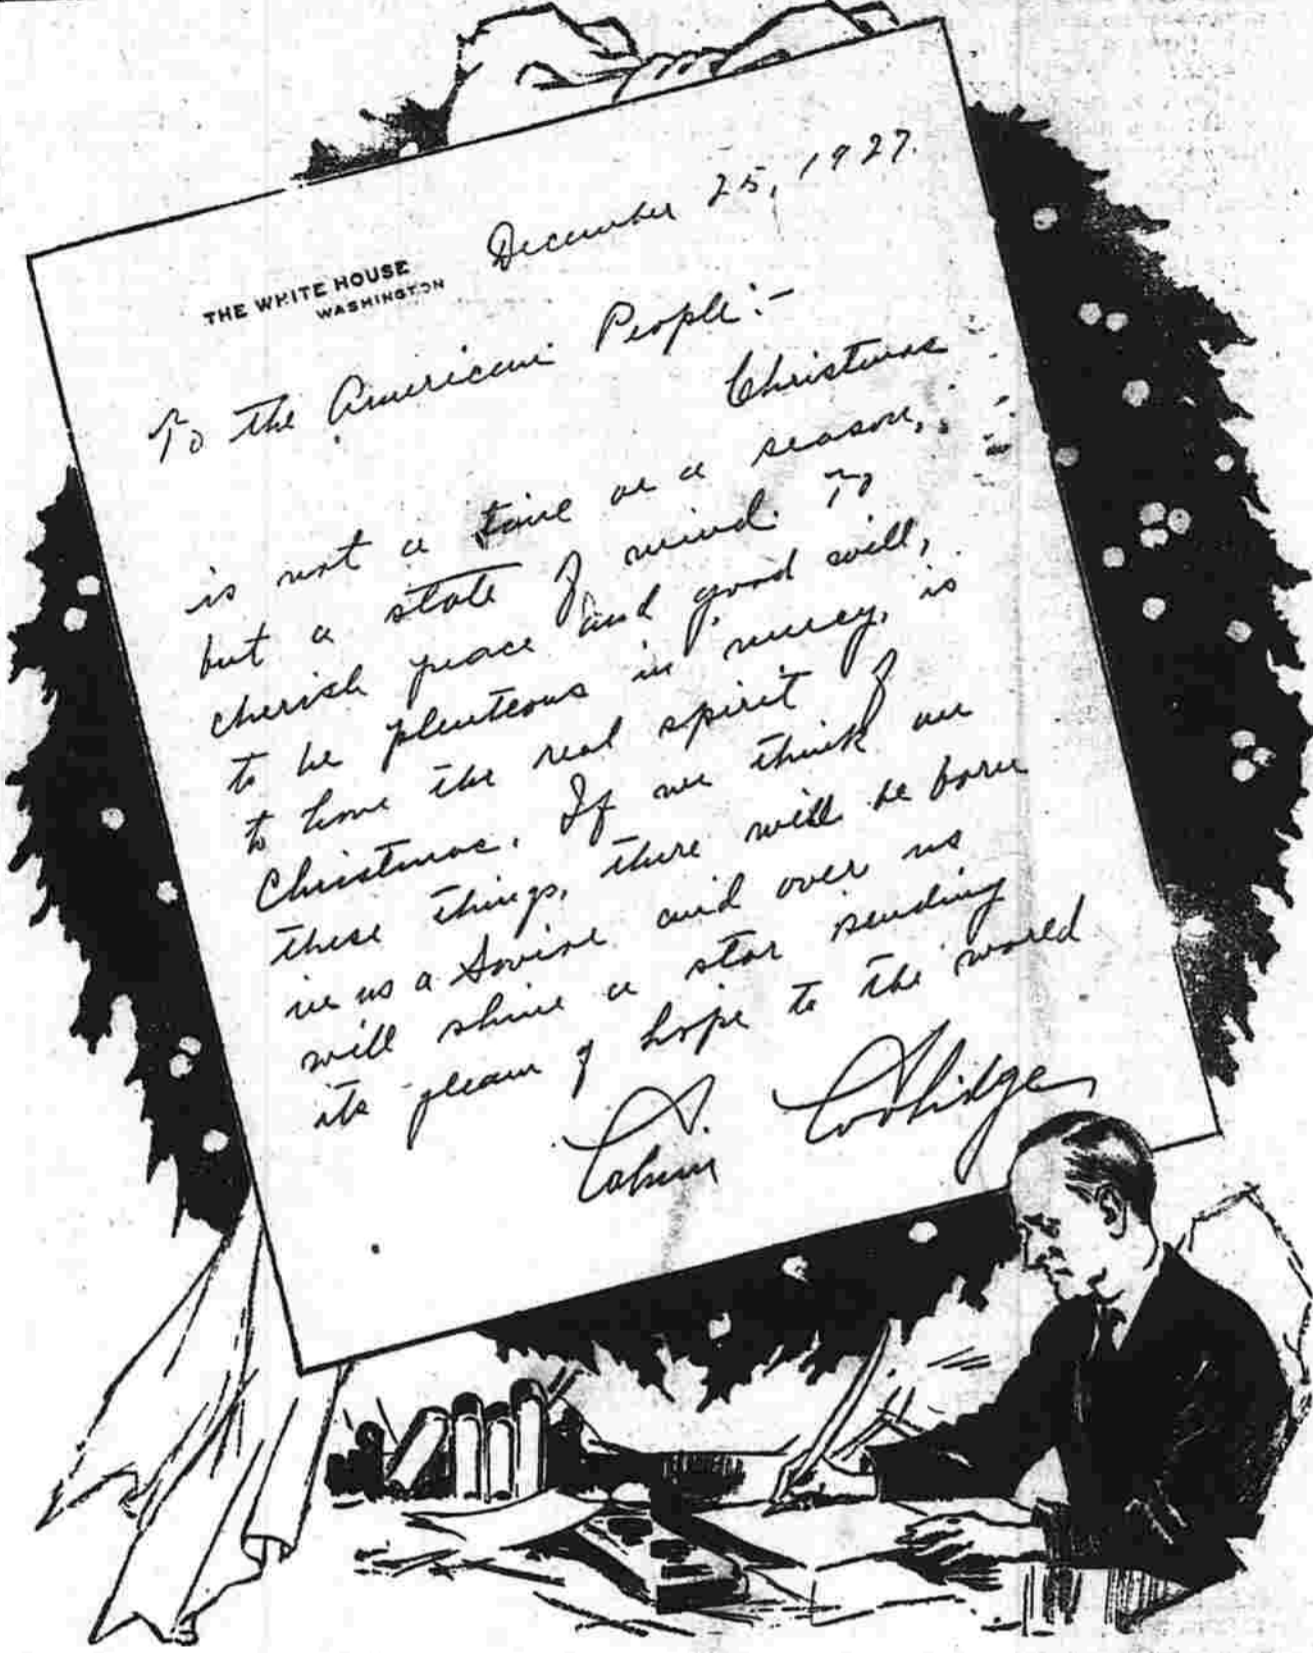 December 25, 1927.
THE WHITE HOUSE
WASHINGTON
To the American People:-
Christmas
is not a time or a season,
but a state of mind. To
cherish peace and good will,
to be plenteous in mercy, is
to have the real spirit of
Christmas. If we think on
these things, there will be born
in us a Savior and over us
will shine a star sending
its gleam of hope to the world
Calvin Coolidge